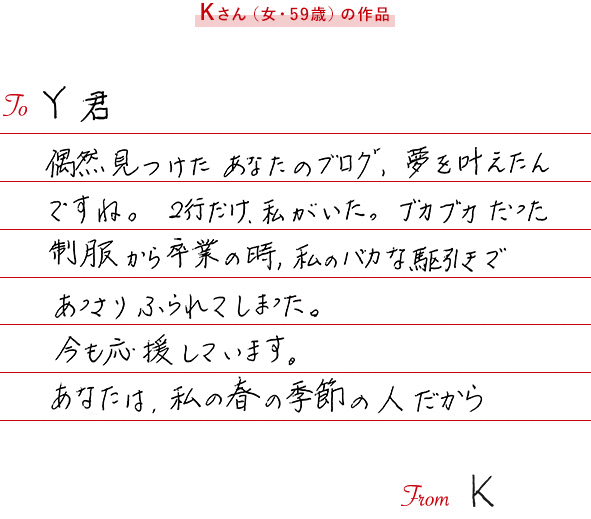 Kさん（女・59歳）の作品
To Y君
偶然見つけたあなたのブログ, 夢を叶えたん
ですね。 2行だけ、私がいた。 ブカブカだった
制服から卒業の時, 私のバカな駆引きで
あっさりふられてしまった。
今も応援しています。
あなたは, 私の春の季節の人だから
From K